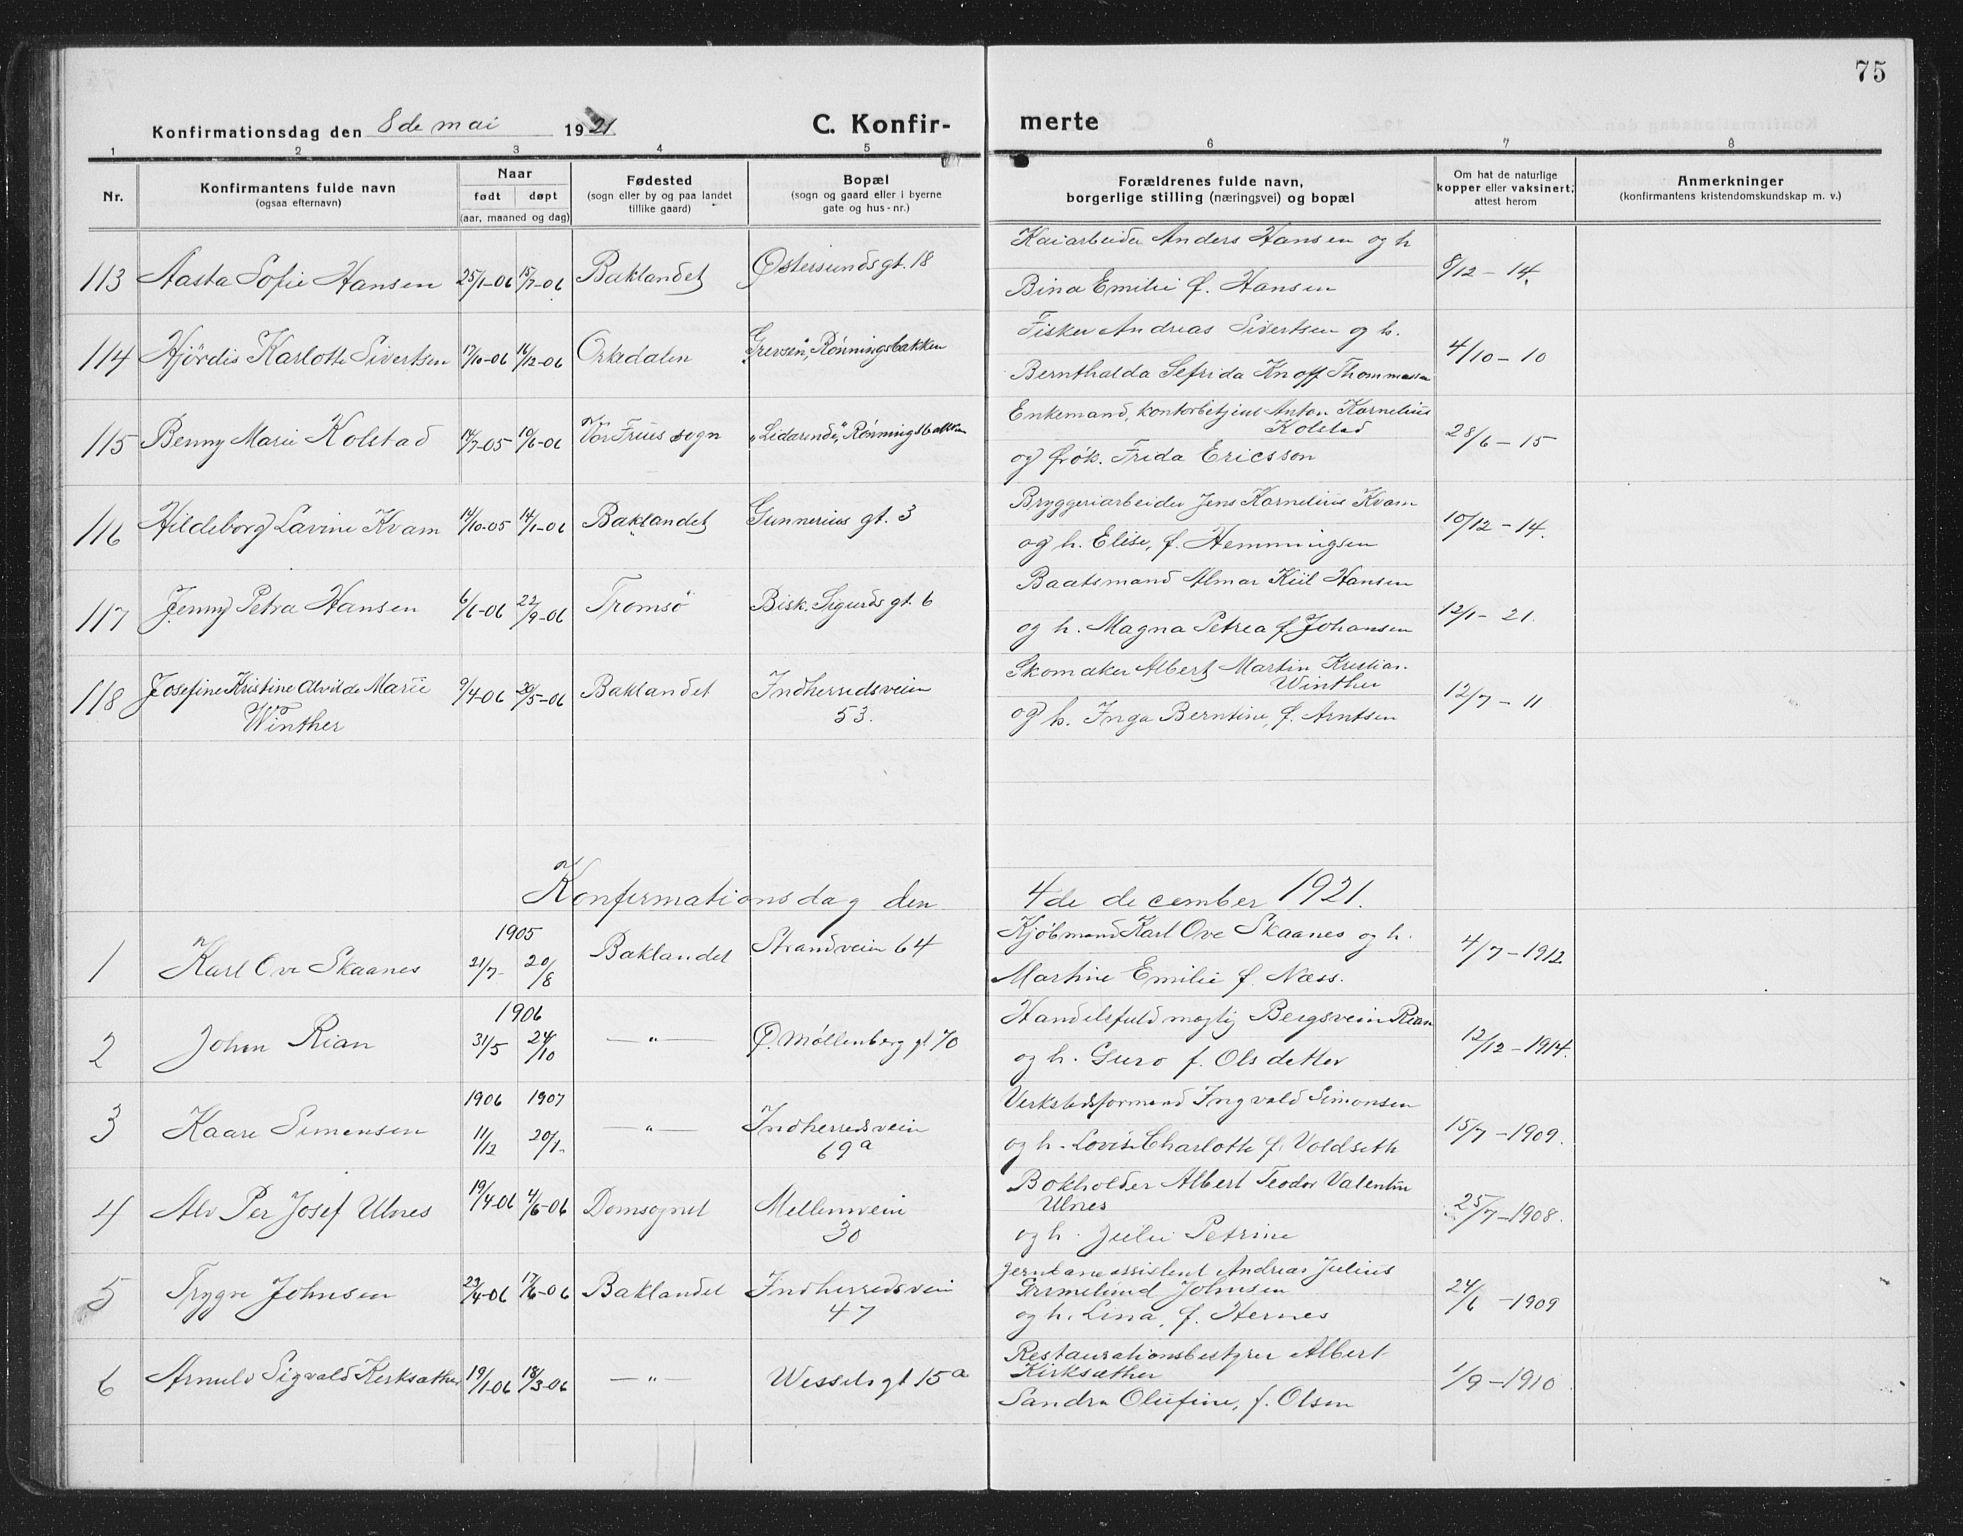 75
Konfirmationsdag den 8de mai 1921
C. Konfirmerte
1 2 3 4 5 6 7 8
Nr.
Konfirmantens fulde navn
(ogsaa efternavn)
Naar
født døpt
(aar, maaned og dag)
Fødested
(sogn eller by og paa landet
tillike gaard)
Bopæl
(sogn og gaard eller i byerne
gate og hus-nr.)
Forældrenes fulde navn,
borgerlige stilling (næringsvei) og bopæl
Om hat de naturlige
kopper eller vaksinert,
attest herom
Anmerkninger
(konfirmantens kristendomskundskap m. v.)
113 Aasta Sofie Hansen 25/1-06 15/7-06 Baklandet Østersundsgt. 18
Kaiarbeider Anders Hansen og h
Bina Emilie f. Hansen
8/12 - 14.
114 Hjördis Karlotte Sivertsen 17/10-06 16/12-06 Orkedalen "Grevsen", Rönningsbakken
Fisker Andreas Sivertsen og h.
Bernthalda Sefrida Knoff Thommesen
4/10 - 10
115 Benny Marie Kolstad 14/7-05 10/6-06 Vor Frues sogn "Lidarende", Rönningsbakken
Enkemand, kontorbetjent Anton Kornelius
Kolstad
og frök. Frida Ericsson
28/6 - 15
116 Hildeborg Lavine Kvam 14/10-05 14/1-06 Baklandet Gunnerius gt. 3
Bryggeriarbeider Jens Kornelius Kvam
og h. Elise, f. Hemmingsen
10/12 - 14.
117 Jenny Petra Hansen 6/6-06 22/9-06 Tromsö Bisk. Sigurds gt. 6
Baatsmand Almar Kiil Hansen
og h. Magna Petrea f. Johansen
12/1 - 21.
118 Josefine Kristine Alvilde Marie
Winther
9/4-06 20/5-06 Baklandet Indherredsveien
53.
Skomaker Albert Martin Kristian
Winther
og h. Inga Berntine, f. Arntsen
12/7 - 11
Konfirmationsdag den 4de december 1921.
1 Karl Ove Skaanes 1905
21/7- 20/8 Baklandet Strandveien 64
Kjöbmand Karl Ove Skaanes og h.
Martine Emilie f. Næss.
4/7 - 1912
2 Johan Rian 1906
31/5 24/10 —"— Ø. Møllenberg gt 70
Handelsfuldmægtig Bergsvein Rian
og h. Guro f. Olsdetter
12/12 - 1914.
3 Kaare Simensen 1906 1907
11/12 20/1- —"— Indherredsveien
69a
Verkstedsformand Ingvald Simonsen
og h. Lovise Charlotte f. Voldseth
15/7 - 1909.
4 Alv Per Josef Ulnes 19/4-06 4/6-06 Domsognet Mellemveien
30
Bokholder Albert Teodor Valentin
Ulnes
og h. Julie Petrine
25/7 - 1908.
5 Trygve Johnsen 22/4-06 17/6-06 Baklandet Indherredsveien
47
Jernbaneassistent Andreas Julius
Johnsen
og h. Lina, f. Hernes
24/6 - 1909
6 Arnulv Sigvald Kirksæther 19/1-06 18/3-06 —"— Wesselsgt 15a
Restaurationsbestyrer Albert
Kirksæther
Sandra Olufine, f. Olsen
1/9 - 1910